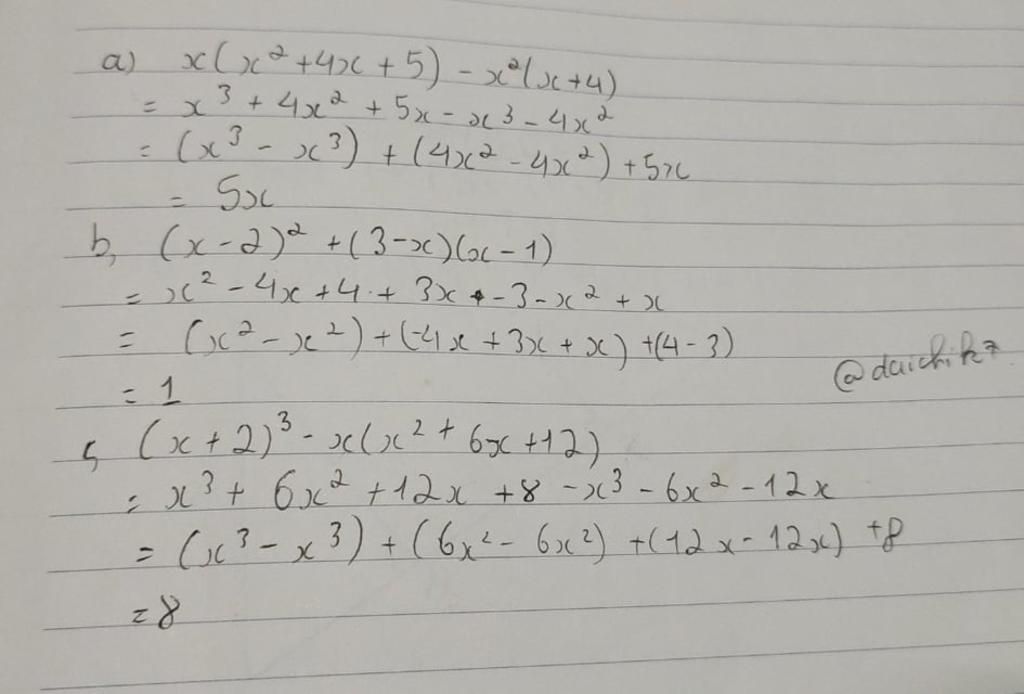 a) x(x²+4x+5)-x²(x+4)
= x³+4x²+5x-x³-4x²
= (x³-x³)+(4x²-4x²)+5x
= 5x
b, (x-2)²+(3-x)(x-1)
= x²-4x+4+3x-3-x²+x
= (x²-x²)+(-4x+3x+x)+(4-3)
= 1
c, (x+2)³-x(x²+6x+12)
= x³+6x²+12x+8-x³-6x²-12x
= (x³-x³)+(6x²-6x²)+(12x-12x)+8
= 8